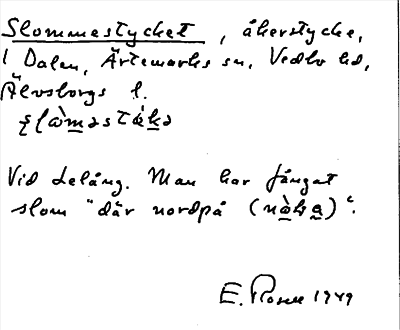 Slommestycket, åkerstycke,
i Dalen, Ärtemarks sn, Vedbo hd,
Älvsborgs l.
slòmǝstǝkǝ
Vid Lelång. Man har fångat
slom "där nordpå (nòka)".
E. Rosen 1949